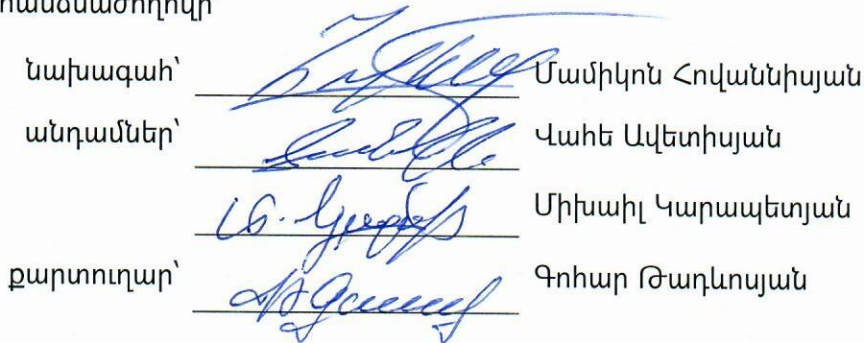 հանձնաժողովի
նախագահ՝ Մամիկոն Հովաննիսյան
անդամներ՝ Վահե Ավետիսյան
Միխաիլ Կարապետյան
քարտուղար՝ Գոհար Թադևոսյան